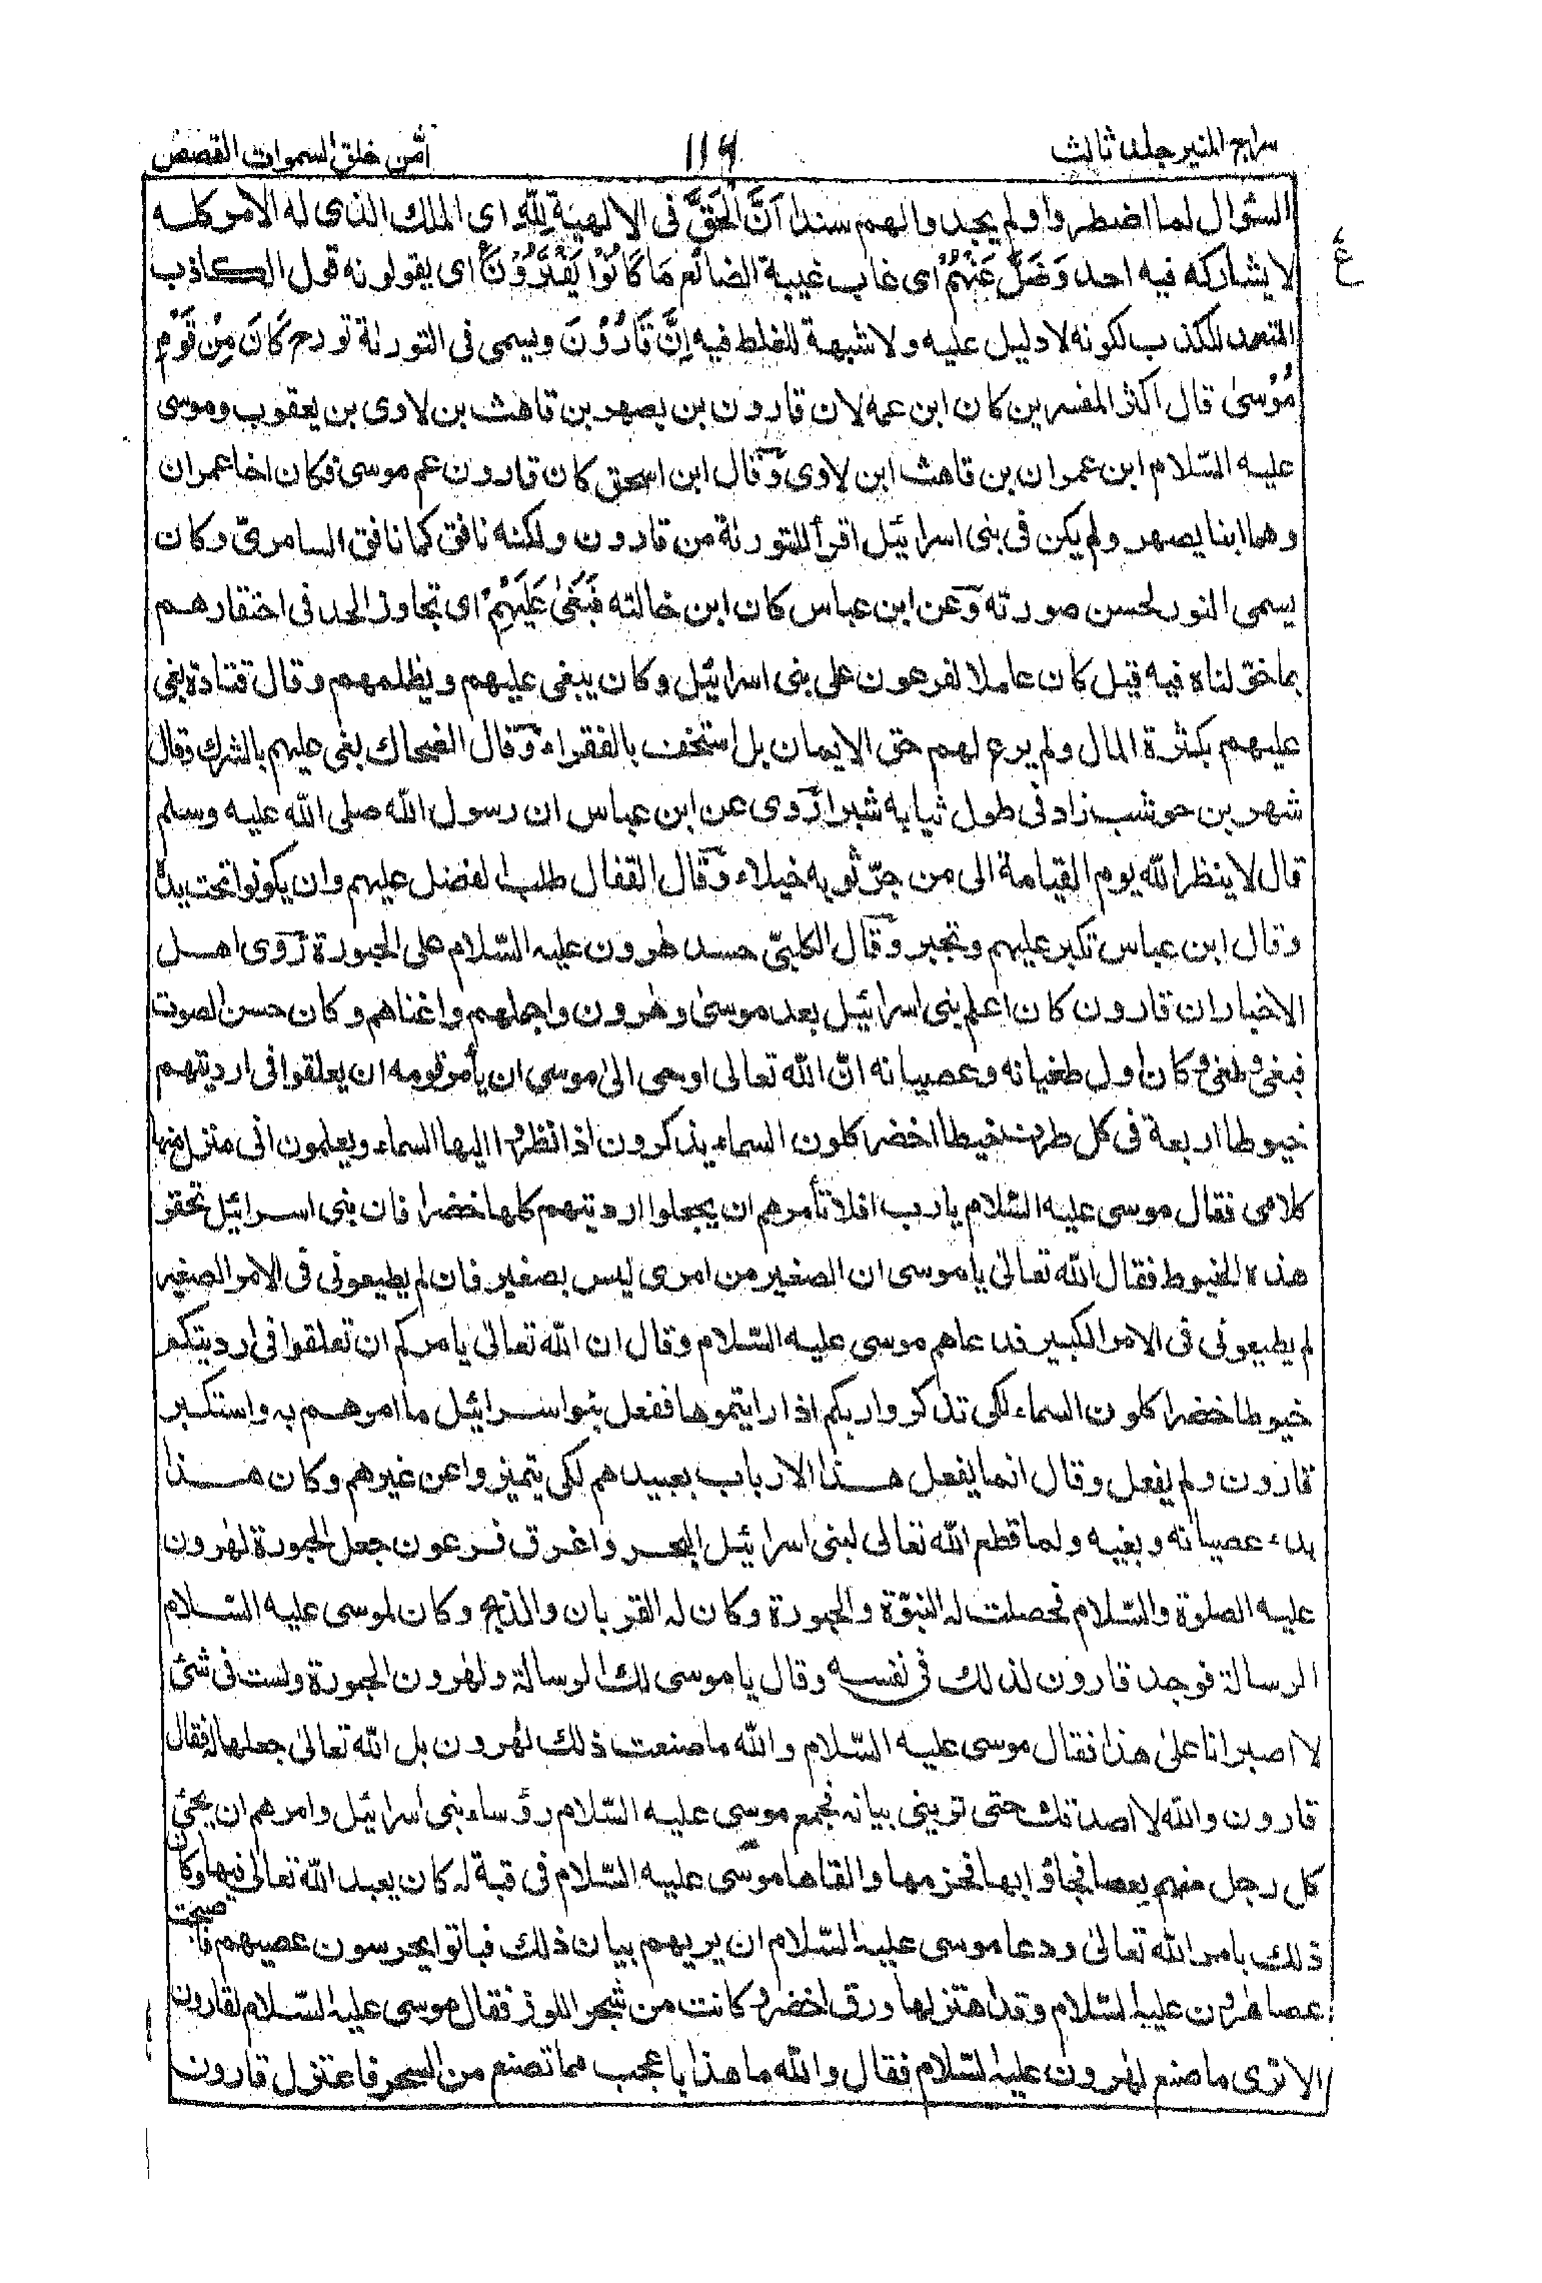 سراج المنير جلد ثالث
١١٦
أمّن خلق السموات القصص
السؤال لما اضطروا ولم يجدوا لهم سندا اَنَّ الْحَقَّ فى الالهية لِلّٰهِ اى الملك الذى له الامر كله
ع
لا يشاركه فيه احد وَضَلَّ عَنْهُمْ اى غاب غيبة الضائع مَا كَانُوْا يَفْتَرُوْنَ اى يقولونه قول الكاذب
المتعمد للكذب لكونه لا دليل عليه ولا شبهة للغلط فيه اِنَّ قَارُوْنَ ويسمى فى التورٰىة تورح كَانَ مِنْ قَوْمِ
مُوْسٰى قال اكثر المفسرين كان ابن عمه لان قارون بن يصهر بن قاهث بن لاوى بن يعقوب وموسى
عليه السّلام ابن عمران بن قاهث ابن لاوى وقال ابن اسحق كان قارون عم موسى فكان اخا عمران
وهما ابنا يصهر ولم يكن فى بنى اسرائيل اقرأ للتورىٰة من قارون ولكنه نافق كما نافق السامرىّ وكان
يسمى النور لحسن صورته وعن ابن عباس كان ابن خالته فَبَغٰى عَلَيْهِمْ اى تجاوز الحد فى احتقارهم
بما خوّلناه فيه قيل كان عاملا لفرعون على بنى اسرائيل وكان يبغى عليهم ويظلمهم وقال قتادة بغى
عليهم بكثرة المال ولم يرع لهم حق الايمان بل استخف بالفقراء وقال الضحاك بغى عليهم بالشرك وقال
شهر بن حوشب زاد فى طول ثيابه شبرا رُوى عن ابن عباس ان رسول الله صلى الله عليه وسلم
قال لا ينظر الله يوم القيامة الى من جرّ ثوبه خيلاء وقال القفال طلب الفضل عليهم وان يكونوا تحت يده
وقال ابن عباس تكبر عليهم وتجبر وقال الكلبىّ حسد هٰرون عليه السّلام على الحبورة رَوى اهل
الاخبار ان قارون كان اعلم بنى اسرائيل بعد موسى وهٰرون واجملهم واغناهم وكان حسن الصوت
فبغى وطغى وكان اول طغيانه وعصيانه انّ الله تعالى اوحى الى موسى ان يأمر قومه ان يعلقوا فى ارديتهم
خيوطا اربعة فى كل طرف خيطا اخضر كلون السماء يذكرون اذا نظروا اليها السماء ويعلمون انى منزل منها
كلامى فقال موسى عليه السّلام يا رب افلا تأمرهم ان يجعلوا ارديتهم كلها خضرا فان بنى اسرائيل تحقر
هذه الخيوط فقال الله تعالى يا موسى ان الصغير من امرى ليس بصغير فان لم يطيعونى فى الامر الصغير
لم يطيعونى فى الامر الكبير فدعاهم موسى عليه السّلام وقال ان الله تعالى يامركم ان تعلقوا فى ارديتكم
خيوطا خضرا كلون السماء لكى تذكروا ربكم اذا رايتموها ففعل بنو اسرائيل ما امرهم به واستكبر
قارون ولم يفعل وقال انما يفعل هذا الارباب بعبيدهم لكى يتميزوا عن غيرهم وكان هذا
بدء عصيانه وبغيه ولما قطع الله تعالى لبنى اسرائيل البحر واغرق فرعون جعل الحبورة لهٰرون
عليه الصلوة والسّلام فحصلت له النبوّة والحبورة وكان له القربان والذبح وكان لموسى عليه السّلام
الرسالة فوجد قارون لذلك فى نفسه وقال يا موسى لك الرسالة ولهٰرون الحبورة ولست فى شئ
لا اصبر انا على هذا فقال موسى عليه السّلام والله ما صنعت ذلك لهٰرون بل الله تعالى جعلها له فقال
قارون والله لا اصدقك حتى ترينى بيانه فجمع موسى عليه السّلام رؤساء بنى اسرائيل وامرهم ان يجئ
كل رجل منهم بعصا فجاؤا بها فحزمها والقاها موسى عليه السّلام فى قبة له كان يعبد الله تعالى فيها وكان
ذلك بامر الله تعالى ودعا موسى عليه السّلام ان يريهم بيان ذلك فباتوا يحرسون عصيهم فاصبحت
عصا هٰرون عليه السّلام وقد اهتز لها ورق اخضر وكانت من شجر اللوز فقال موسى عليه السّلام لقارون
الا ترى ما صنع لهٰرون عليه السّلام فقال والله ما هذا باعجب مما تصنع من السحر فاعتزل قارون